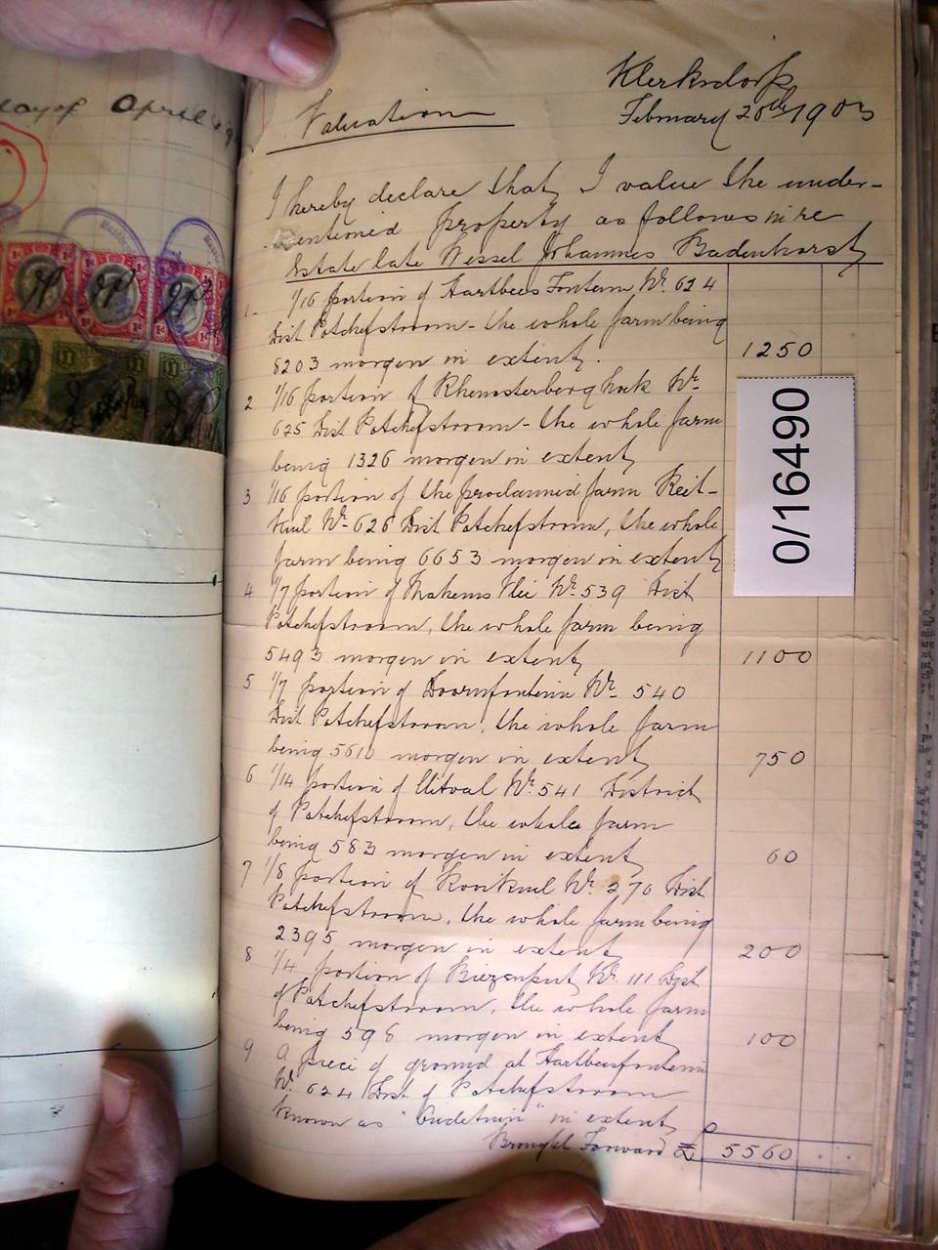 day of April
Klerksdorp
February 20th 1903
Valuation
I hereby declare that I value the under-
mentioned property as follows in re
Estate late Wessel Johannes Badenhorst
1. 1/16 portion of Hartbees Fontein No. 624
Dist Potchefstroom - the whole farm being
8203 morgen in extent. 1250
2 1/16 portion of Rhenosterberg hoek No.
625 Dist Potchefstroom - the whole farm
being 1326 morgen in extent
3 1/16 portion of the proclaimed farm Reit-
kuil No. 626 Dist Potchefstroom, the whole
farm being 6653 morgen in extent
0/16490
4 1/7 portion of Mahems Vlei No. 539 Dist
Potchefstroom, the whole farm being
5493 morgen in extent 1100
5 1/7 portion of Doornfontein No. 540
Dist Potchefstroom, the whole farm
being 5610 morgen in extent 750
6 1/14 portion of Uitval No. 541 District
of Potchefstroom, the whole farm
being 583 morgen in extent 60
7 1/8 portion of No. 270 Dist
Potchefstroom, the whole farm being
2395 morgen in extent 200
8 1/4 portion of Biezenput No. 111 Dist
of Potchefstroom, the whole farm
being 598 morgen in extent 100
9 a piece of ground at Hartbeesfontein
No. 624 Dist of Potchefstroom
known as "" in extent
Brought Forward £ 5560